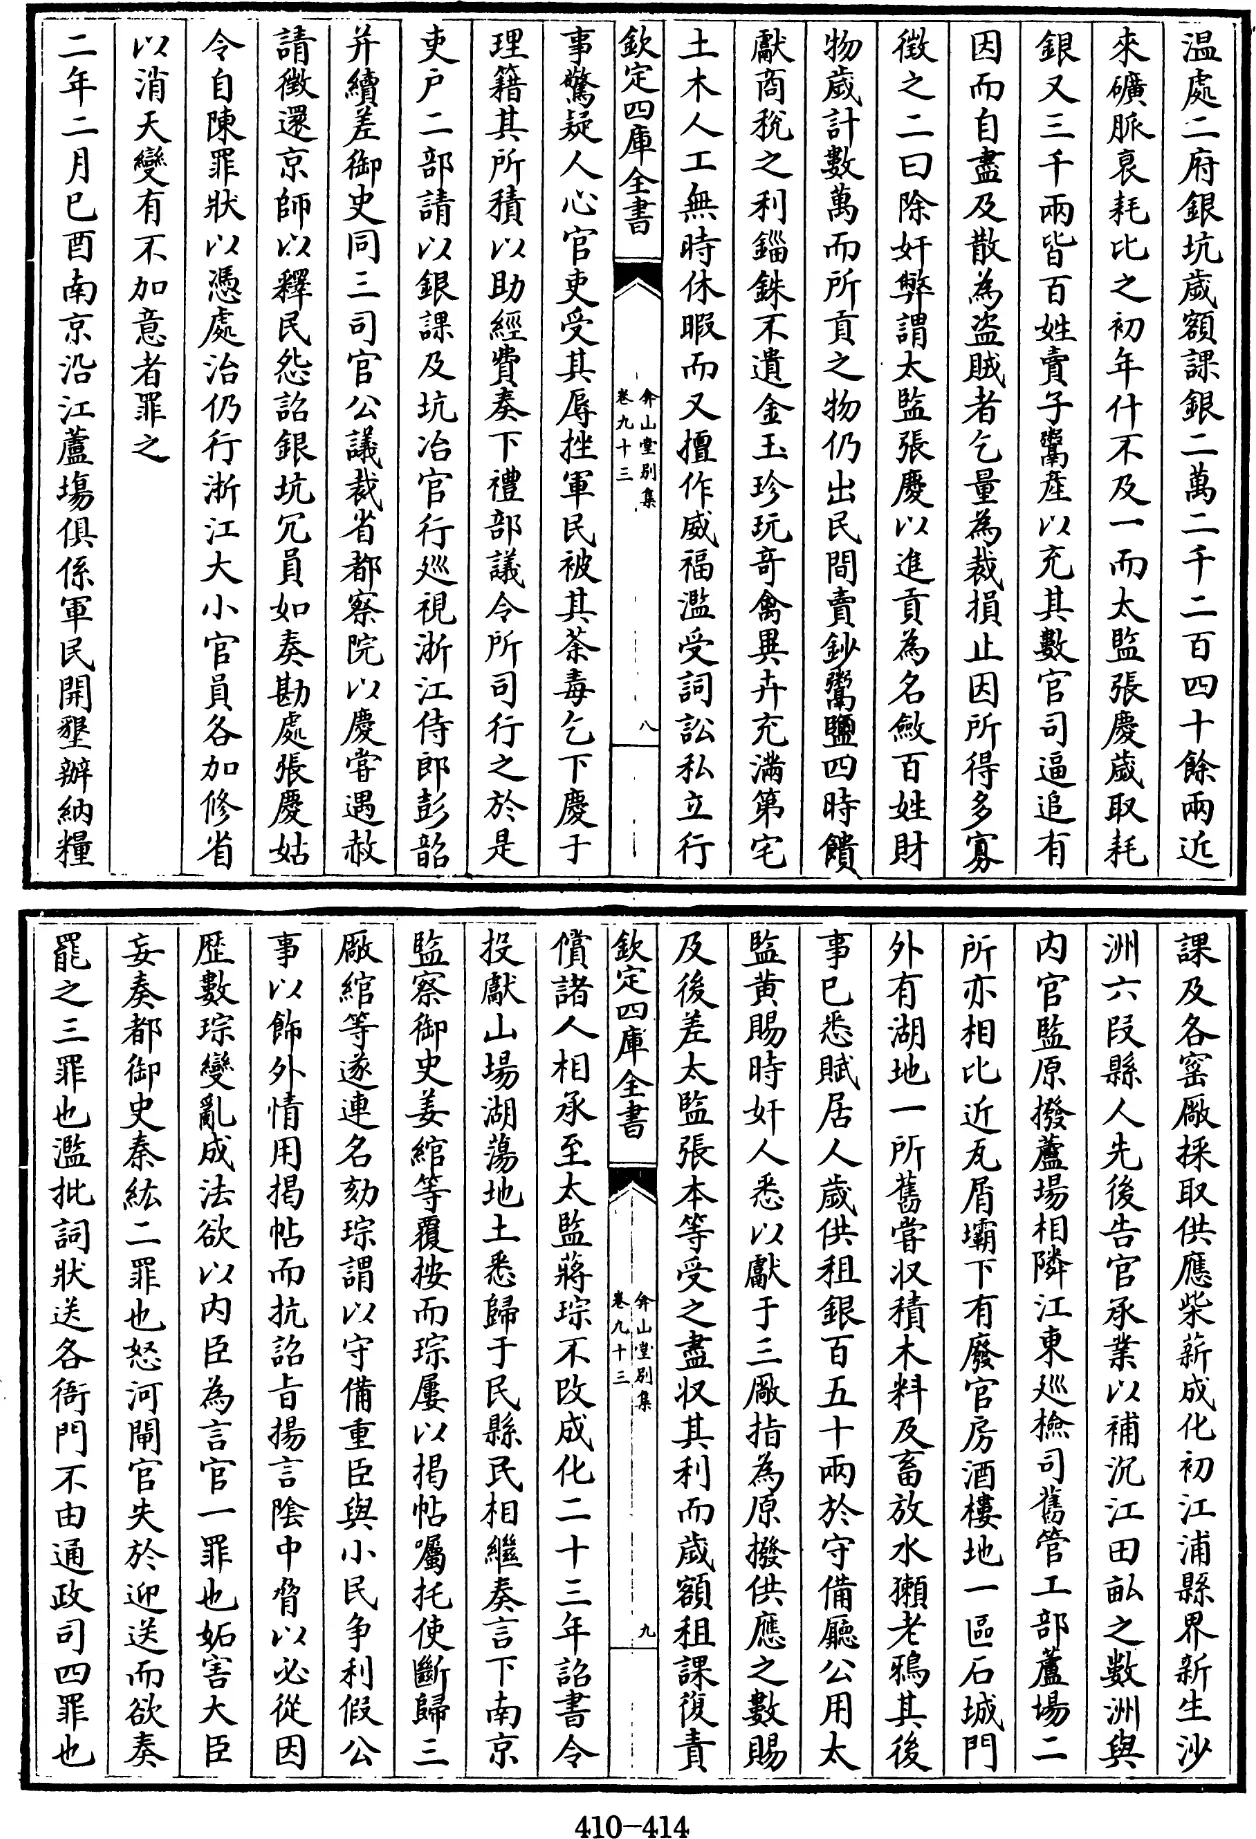 温處二府銀坑歲額課銀二萬二千二百四十餘兩近
來礦脈衰耗比之初年什不及一而太監張慶歲取耗
銀又三千兩皆百姓賣子鬻產以充其數官司逼追有
因而自盡及散為盗賊者乞量為裁損止因所得多寡
徵之二曰除奸弊謂太監張慶以進貢為名斂百姓財
物歲計數萬而所貢之物仍出民間賣鈔鬻鹽四時饋
獻商稅之利錙銖不遺金玉珍玩奇禽異卉充滿第宅
土木人工無時休暇而又擅作威福濫受詞訟私立行
欽定四庫全書
弇山堂别集
卷九十三
八
事驚疑人心官吏受其辱挫軍民被其荼毒乞下慶于
理籍其所積以助經費奏下禮部議令所司行之於是
吏户二部請以銀課及坑冶官行廵視浙江侍郎彭韶
并續差御史同三司官公議裁省都察院以慶嘗遇赦
請徵還京師以釋民怨詔銀坑冗員如奏勘處張慶姑
令自陳罪狀以憑處治仍行浙江大小官員各加修省
以消天變有不加意者罪之
二年二月已酉南京沿江蘆塲俱係軍民開墾辦納糧
課及各窰厰採取供應柴薪成化初江浦縣界新生沙
洲六段縣人先後告官承業以補沉江田畝之數洲與
内官監原撥蘆場相隣江東廵檢司舊管工部蘆場二
所亦相比近瓦屑壩下有廢官房酒樓地一區石城門
外有湖地一所舊嘗收積木料及畜放水獺老鴉其後
事已悉賦居人歲供租銀百五十兩於守備廳公用太
監黄賜時奸人悉以獻于三厰指為原撥供應之數賜
及後差太監張本等受之盡收其利而歲額租課復責
欽定四庫全書
弇山堂别集
卷九十三
九
償諸人相承至太監蔣琮不改成化二十三年詔書令
投獻山場湖蕩地土悉歸于民縣民相繼奏言下南京
監察御史姜綰等覆按而琮屢以揭帖囑托使斷歸三
厰綰等遂連名劾琮謂以守備重臣與小民争利假公
事以飾外情用揭帖而抗詔旨揚言陰中脅以必從因
歷數琮變亂成法欲以内臣為言官一罪也妬害大臣
妄奏都御史秦紘二罪也怒河閘官失於迎送而欲奏
罷之三罪也濫批詞狀送各衙門不由通政司四罪也
410-414